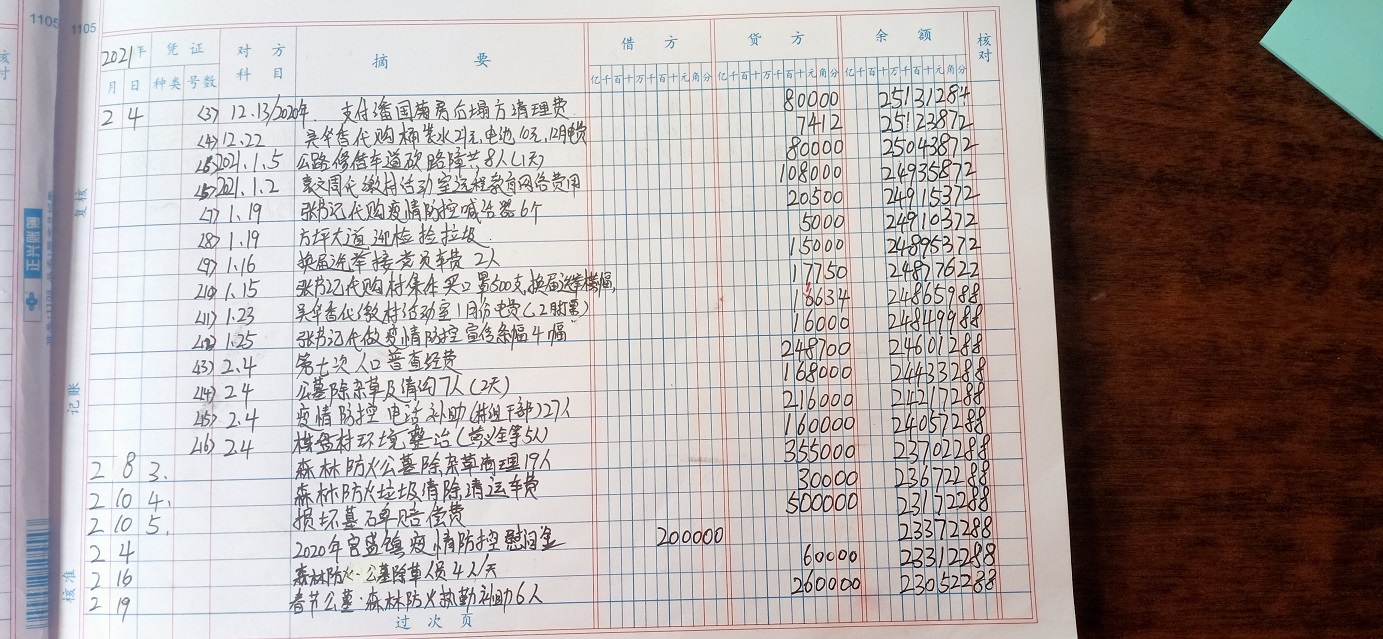 1105
1105
2021年 凭证 对方 摘要 借方 贷方 余额 核对
月 日 种类 号数 科目 亿千百十万千百十元角分 亿千百十万千百十元角分 亿千百十万千百十元角分
2 4 (3) 12.13/2020年. 支付潘国菊房后塌方清理费 80000 25131284
(4) 12.22 吴华香代购桶装水21元,电池10元,12月电费 7412 25123872
(5) 2021.1.5 公路修借车道砍路障共8人(1天) 80000 25043872
(6) 2021.1.2 袁文周代缴村活动室远程教育网络费用 108000 24935872
(7) 1.19 张书记代购疫情防控喊话器6个 20500 24915372
(8) 1.19 方坪大道迎检捡垃圾. 5000 24910372
(9) 1.16 换届选举接党员车费 2人 15000 24895372
(10) 1.15 张书记代购村集体买口罩500支,换届选举横幅, 17750 24877622
(11) 1.23 吴华香代缴村活动室1月份电费 11634 24865988
(12) 1.25 张书记代做疫情防控宣传条幅4幅 16000 24849988
(13) 2.4 第七次人口普查经费 248700 24601288
(14) 2.4 公墓除杂草及清沟7人(2天) 168000 24433288
(15) 2.4 疫情防控电话补助(村组干部)27人 216000 24217288
(16) 2.4 棋盘村环境整治(黄义全等5人) 160000 24057288
2 8 3. 森林防火公墓除杂草清理19人 355000 23702288
2 10 4. 森林防火垃圾清除清运车费 30000 23672288
2 10 5. 损坏墓石单赔偿费 500000 23172288
2 4 2020年官盛镇疫情防控慰问金 200000 23372288
2 16 森林防火·公墓除草人员4人/天 60000 23312288
2 19 春节公墓·森林防火执勤补助6人 260000 23052288
过次页
核对
复核
记账
核准
正兴